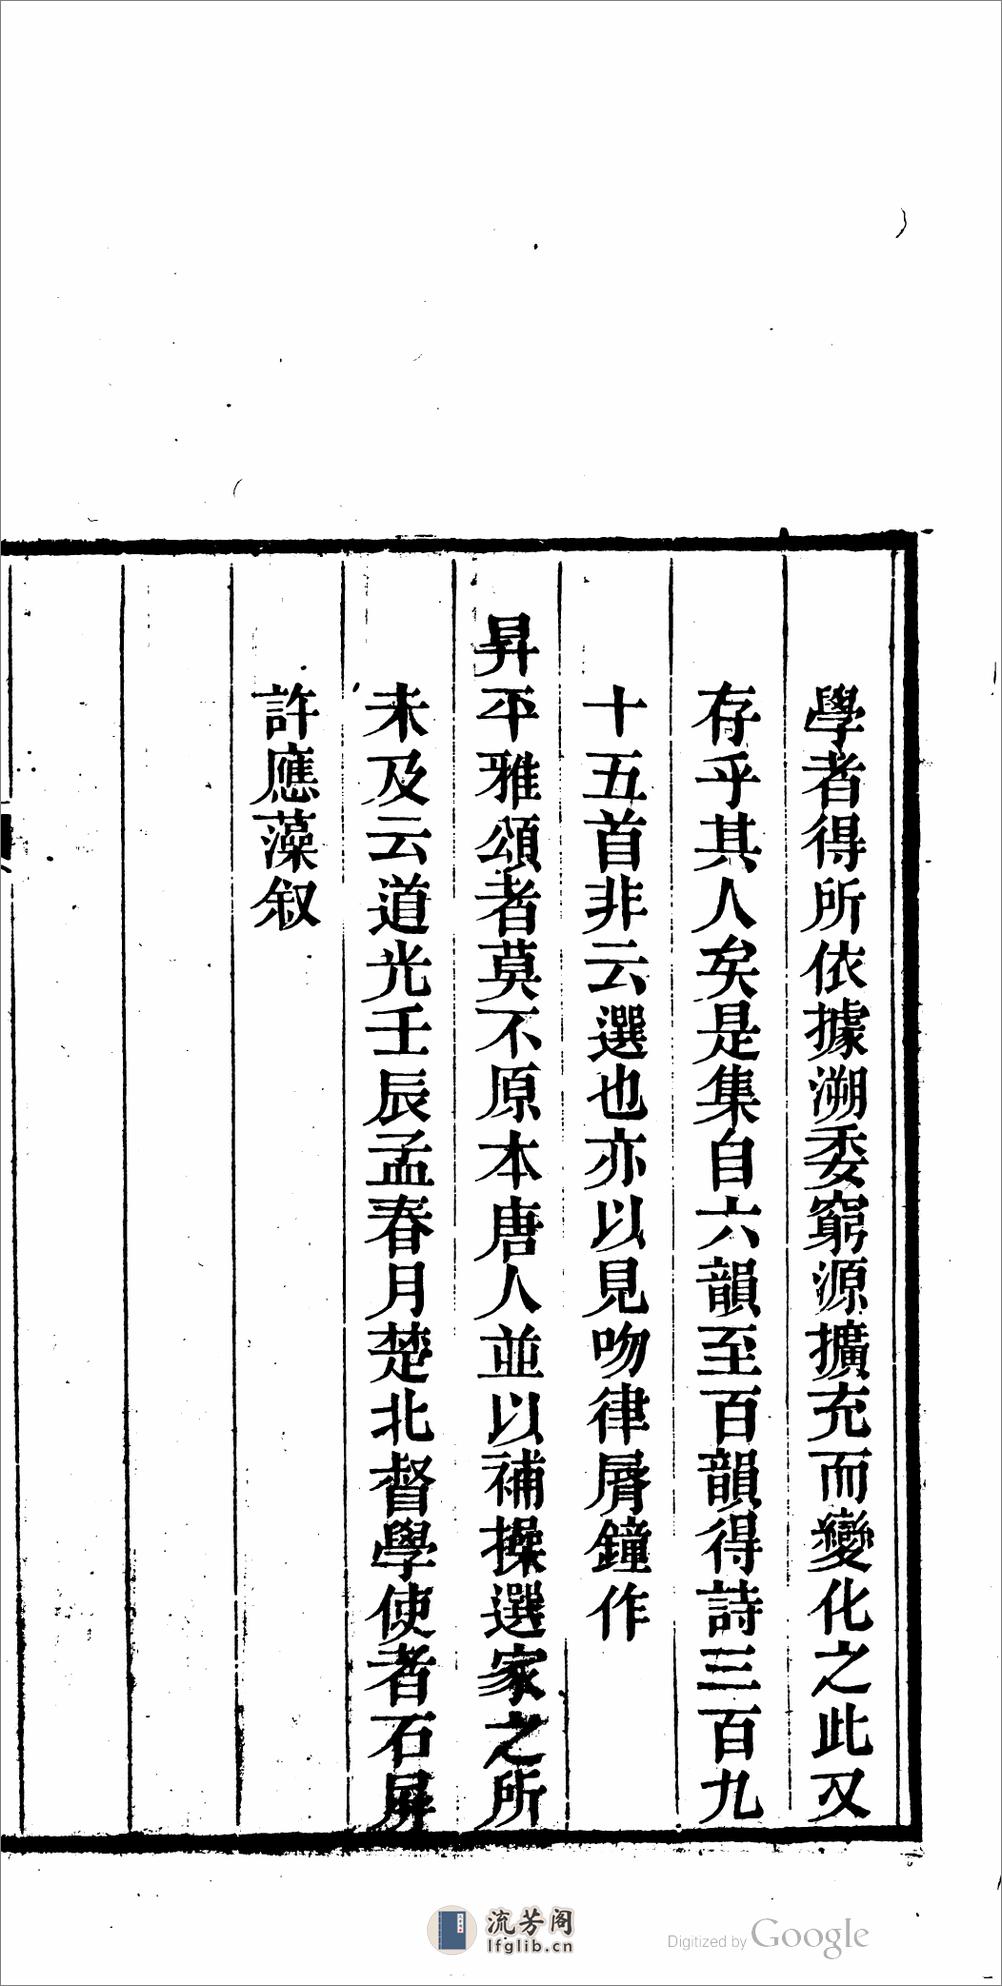 學者得所依據溯委窮源擴充而變化之此又
存乎其人矣是集自六韻至百韻得詩三百九
十五首非云選也亦以見吻律脣鐘作
昇平雅頌者莫不原本唐人並以補操選家之所
未及云道光壬辰孟春月楚北督學使者石屏
許應藻叙
流芳阁
lfglib.cn
Digitized by Google